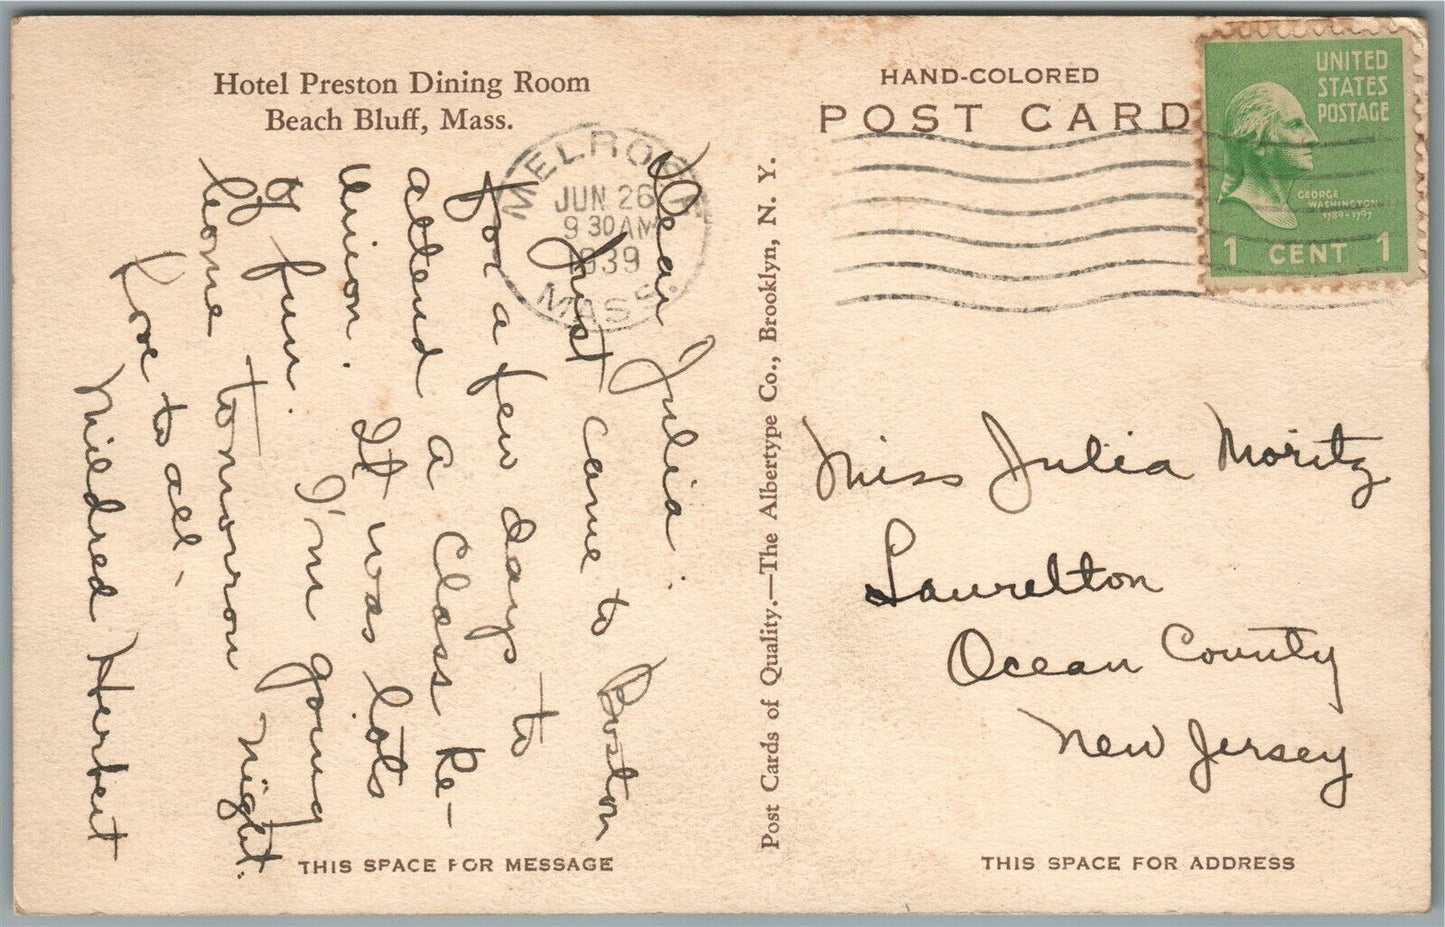 Hotel Preston Dining Room
Beach Bluff, Mass.
HAND-COLORED
POST CARD
UNITED
STATES
POSTAGE
GEORGE
WASHINGTON
1789-1797
1 CENT 1
MELROSE
JUN 26
9 30 AM
1939
MASS.
Dear Julia,
Just came to Boston
for a few days to
attend a Class Re-
union. It was lots
of fun. I'm going
home tomorrow night.
Love to all -
Mildred Herbert
Post Cards of Quality.—The Albertype Co., Brooklyn, N. Y.
Miss Julia Moritz
Laurelton
Ocean County
New Jersey
THIS SPACE FOR MESSAGE
THIS SPACE FOR ADDRESS